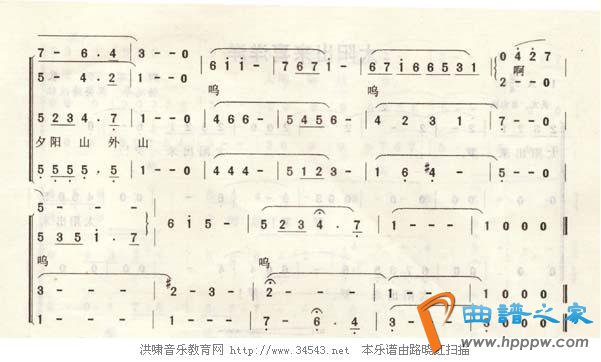 7 - 6. 4 | 3 - - 0 | 6 1 1 - | 7 6 7 1 - | 6 7 1 6 6 5 3 1 | 0 4 2 7
5 - 4. 2 | 1 - - 0 | 呜 呜 啊 2 - - 0
5 2 3 4. 7 | 1 - - 0 | 4 6 6 - | 5 4 5 6 - | 4 2 3 1 | 7 - - 0
夕阳 山 外 山
5 5 5 5. 5 | 1 - - 0 | 4 4 4 - | 5 1 2 3 - | 1 6 #4 - | 5 - - 0
5 - - | 6 1 5 - | 5 2 3 4. 7 | 1 - - - | 1 0 0 0
5 3 5 1. 7
呜 呜
3 - - - | #2 - 2 3 - | 2 - - - | 3 - - - | 3 0 0 0
1 - - - | 2 - 1 - | 7 - 6. 4 | 3 - - - | 1 0 0 0
曲谱之家
www.hppw.com
洪啸音乐教育网 http://www.34543.net 本乐谱由路晓红扫描